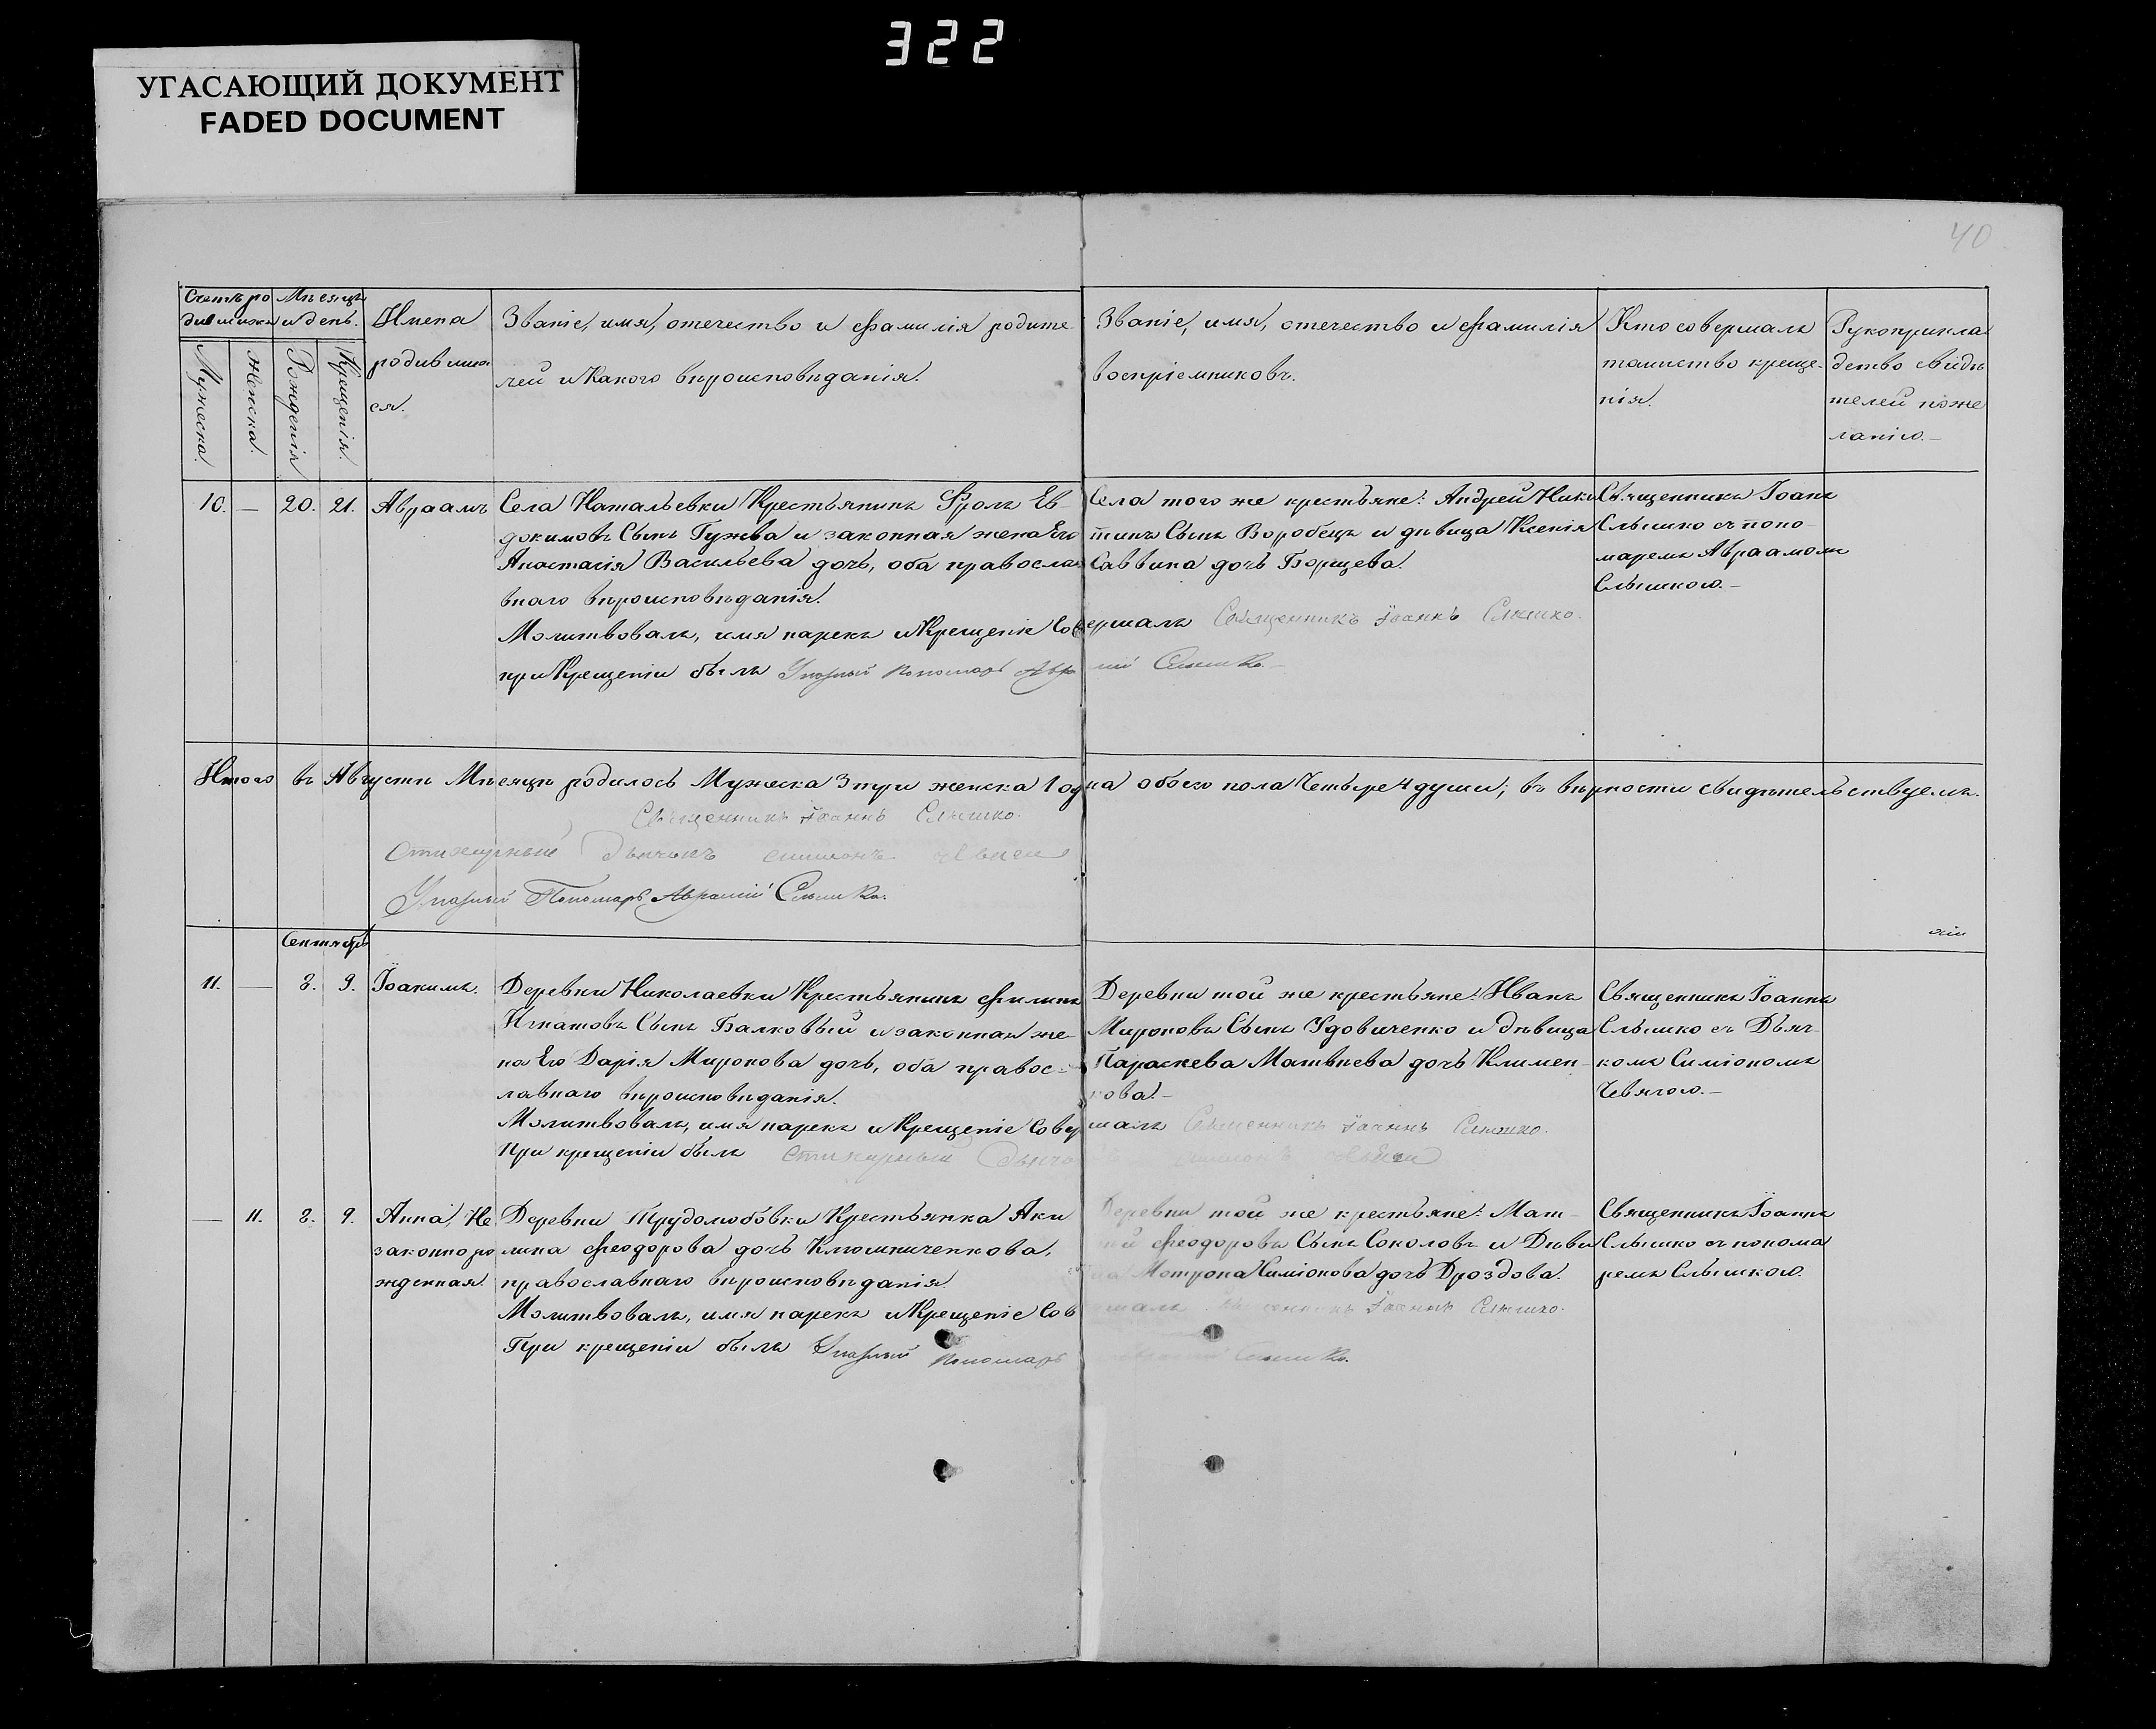 322
УГАСАЮЩИЙ ДОКУМЕНТ
FADED DOCUMENT
40
Счетъ ро
дившихся
Мѣсяцъ
и день.
Мужеска.
Женска.
Рожденія
Крещенія.
Имена
родивших
ся.
Званіе, имя, отечество и фамилія родите
лей и какого вѣроисповѣданія.
Званіе, имя, отечество и фамилія
воспріемниковъ.
Кто совершалъ
таинство креще-
нія.
Рукоприкла
дство свидѣ
телей по же
ланію.–
10. — 20. 21. Авраамъ
Села Натальевки Крестьянинъ Фролъ Ев-
докимовъ Сынъ Гужва и законная жена Его
Анастасія Васильева дочь, оба правосла
внаго вѣроисповѣданія.
Молитвовалъ, имя нарекъ и Крещеніе Совершалъ Священникъ Іоаннъ Слышко.
при Крещеніи былъ Пономарь Слышко.–
Села того же крестьяне: Андрей Ники
тинъ Сынъ Воробецъ и дѣвица Ксенія
Саввина дочь Борщева.
Священникъ Іоанъ
Слышко съ поно-
маремъ Авраамомъ
Слышкою.–
Итого въ Августѣ Мѣсяцѣ родилось Мужеска 3 три женска 1 одна обоего пола Четыре 4 души; въ вѣрности свидѣтельствуемъ.
Священникъ Іоаннъ Слышко.
Стихарный дьячекъ
Пономарь Аврамій Слышко.
Сентябрь
11. — 8. 9. Іоакимъ.
Деревни Николаевки Крестьянинъ Филипъ
Игнатовъ Сынъ Балковый и законная же-
на Его Дарія Миронова дочь, оба правос-
лавнаго вѣроисповѣданія.
Молитвовалъ, имя нарекъ и Крещеніе Совершалъ Священникъ Іоаннъ Слышко.
При крещеніи былъ Стихарный
Деревни той же крестьяне: Иванъ
Мироновъ Сынъ Удовиченко и дѣвица
Параскева Матвѣева дочь Климен-
кова.–
Священникъ Іоаннъ
Слышко съ Дьяч-
комъ Симіономъ
Чевягою.–
— 11. 8. 9. Анна, Не
законноро
жденная.
Деревни Трудолюбовки Крестьянка Аки
лина Феодорова дочь Клюшниченкова,
православнаго вѣроисповѣданія
Молитвовалъ, имя нарекъ и Крещеніе Совершалъ Священникъ Іоаннъ Слышко.
При крещеніи былъ Пономарь Слышко.
Деревни той же крестьяне: Мат-
Феодоровъ Сынъ Соколовъ и Дѣви
Мотрона Симіонова дочь Дроздова.
Священникъ Іоаннъ
Слышко съ понома
ремъ Слышкою.